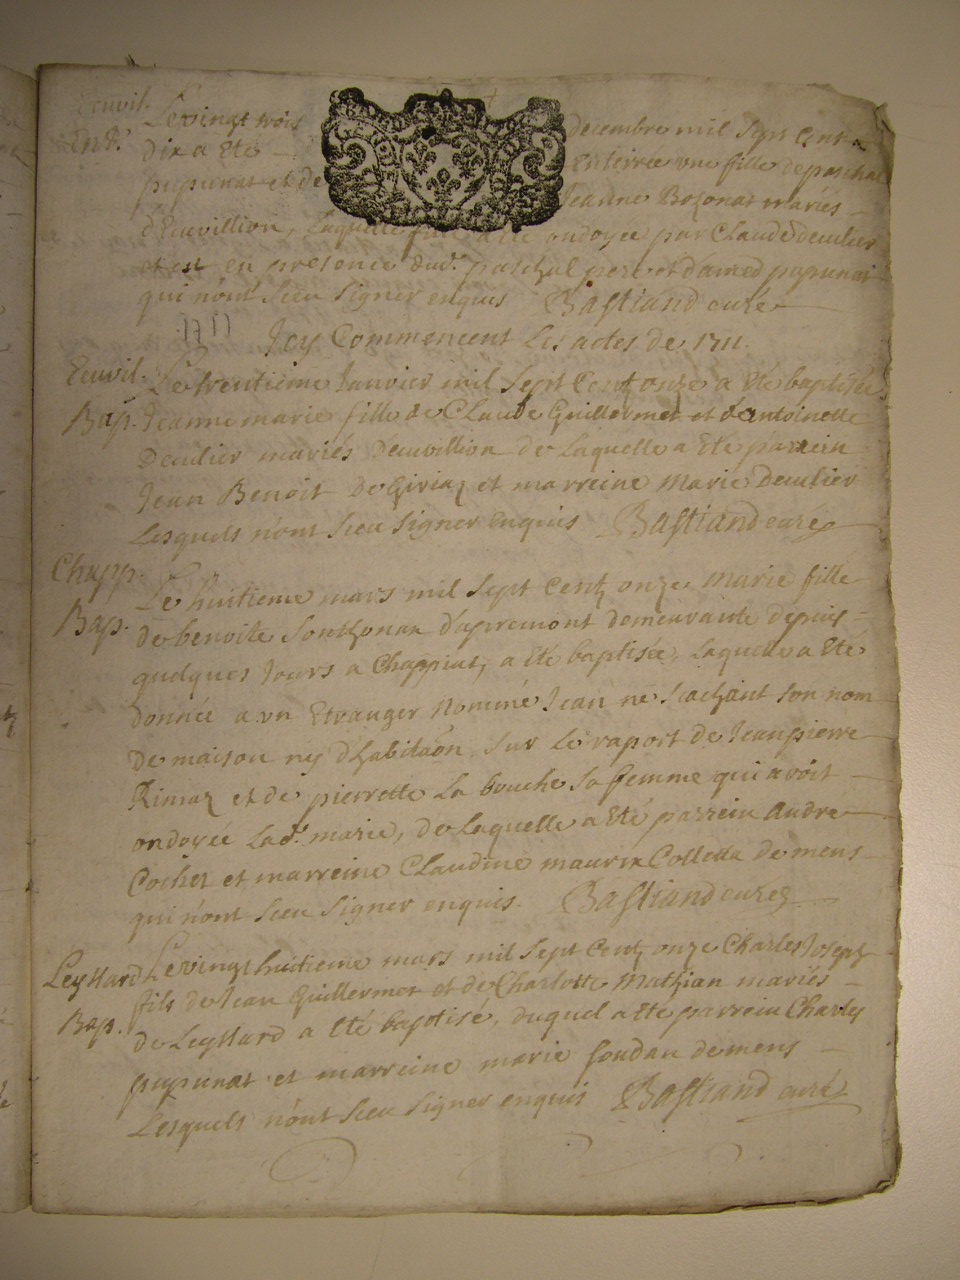 Ecuvil.
Ent.
Le vingt trois decembre mil sept cent
dix a Eté Enterrée une fille de paschal
pupunat et de Jeanne Bozonat mariés
d'Ecuvillion, Laquelle a Eté ondoyée par Claude deculier
et est en presence dud. paschal pere et d'amed papunat
qui n'ont sceu signer enquis Bastiand curé
1711
Icy Commencent les actes de 1711.
Ecuvil.
Bap.
Le trentieme Janvier mil sept Cent onze a Eté baptisée
Jeanne marie fille de Claude Guillermet et d'antoinette
Deculier mariés d'ecuvillion de Laquelle a Eté parrein
Jean Benoit de Giriaz et marreine Marie Deculier
Lesquels n'ont sceu signer enquis Bastiand curé
Chapp.
Bap.
Le huitieme mars mil sept Centz onze marie fille
de benoite Sonthonax d'apremont demeurante depuis
quelques Jours a Chappiat, a Eté baptisée, Laquelle a Eté
donnée a un Etranger Nommé Jean ne scachant son nom
de maison ny d'habitaôn sur Le raport de Jean pierre
Rimaz et de pierrette La bouche sa femme qui avoit
ondoyée Lad. marie, de Laquelle a Eté parrein Andre
Cochet et marreine Claudine maurix Colletta de mens
qui n'ont sceu signer enquis. Bastiand curé
Leyssard
Bap.
Le vingt huitieme mars mil sept Centz onze Charles Joseph
fils de Jean Guillermet et de Charlotte Mathian mariés
de Leyssard a Eté baptisé, duquel a Eté parrein Charles
pupunat et marreine marie foudan de mens
Lesquels n'ont sceu signer enquis Bastiand curé